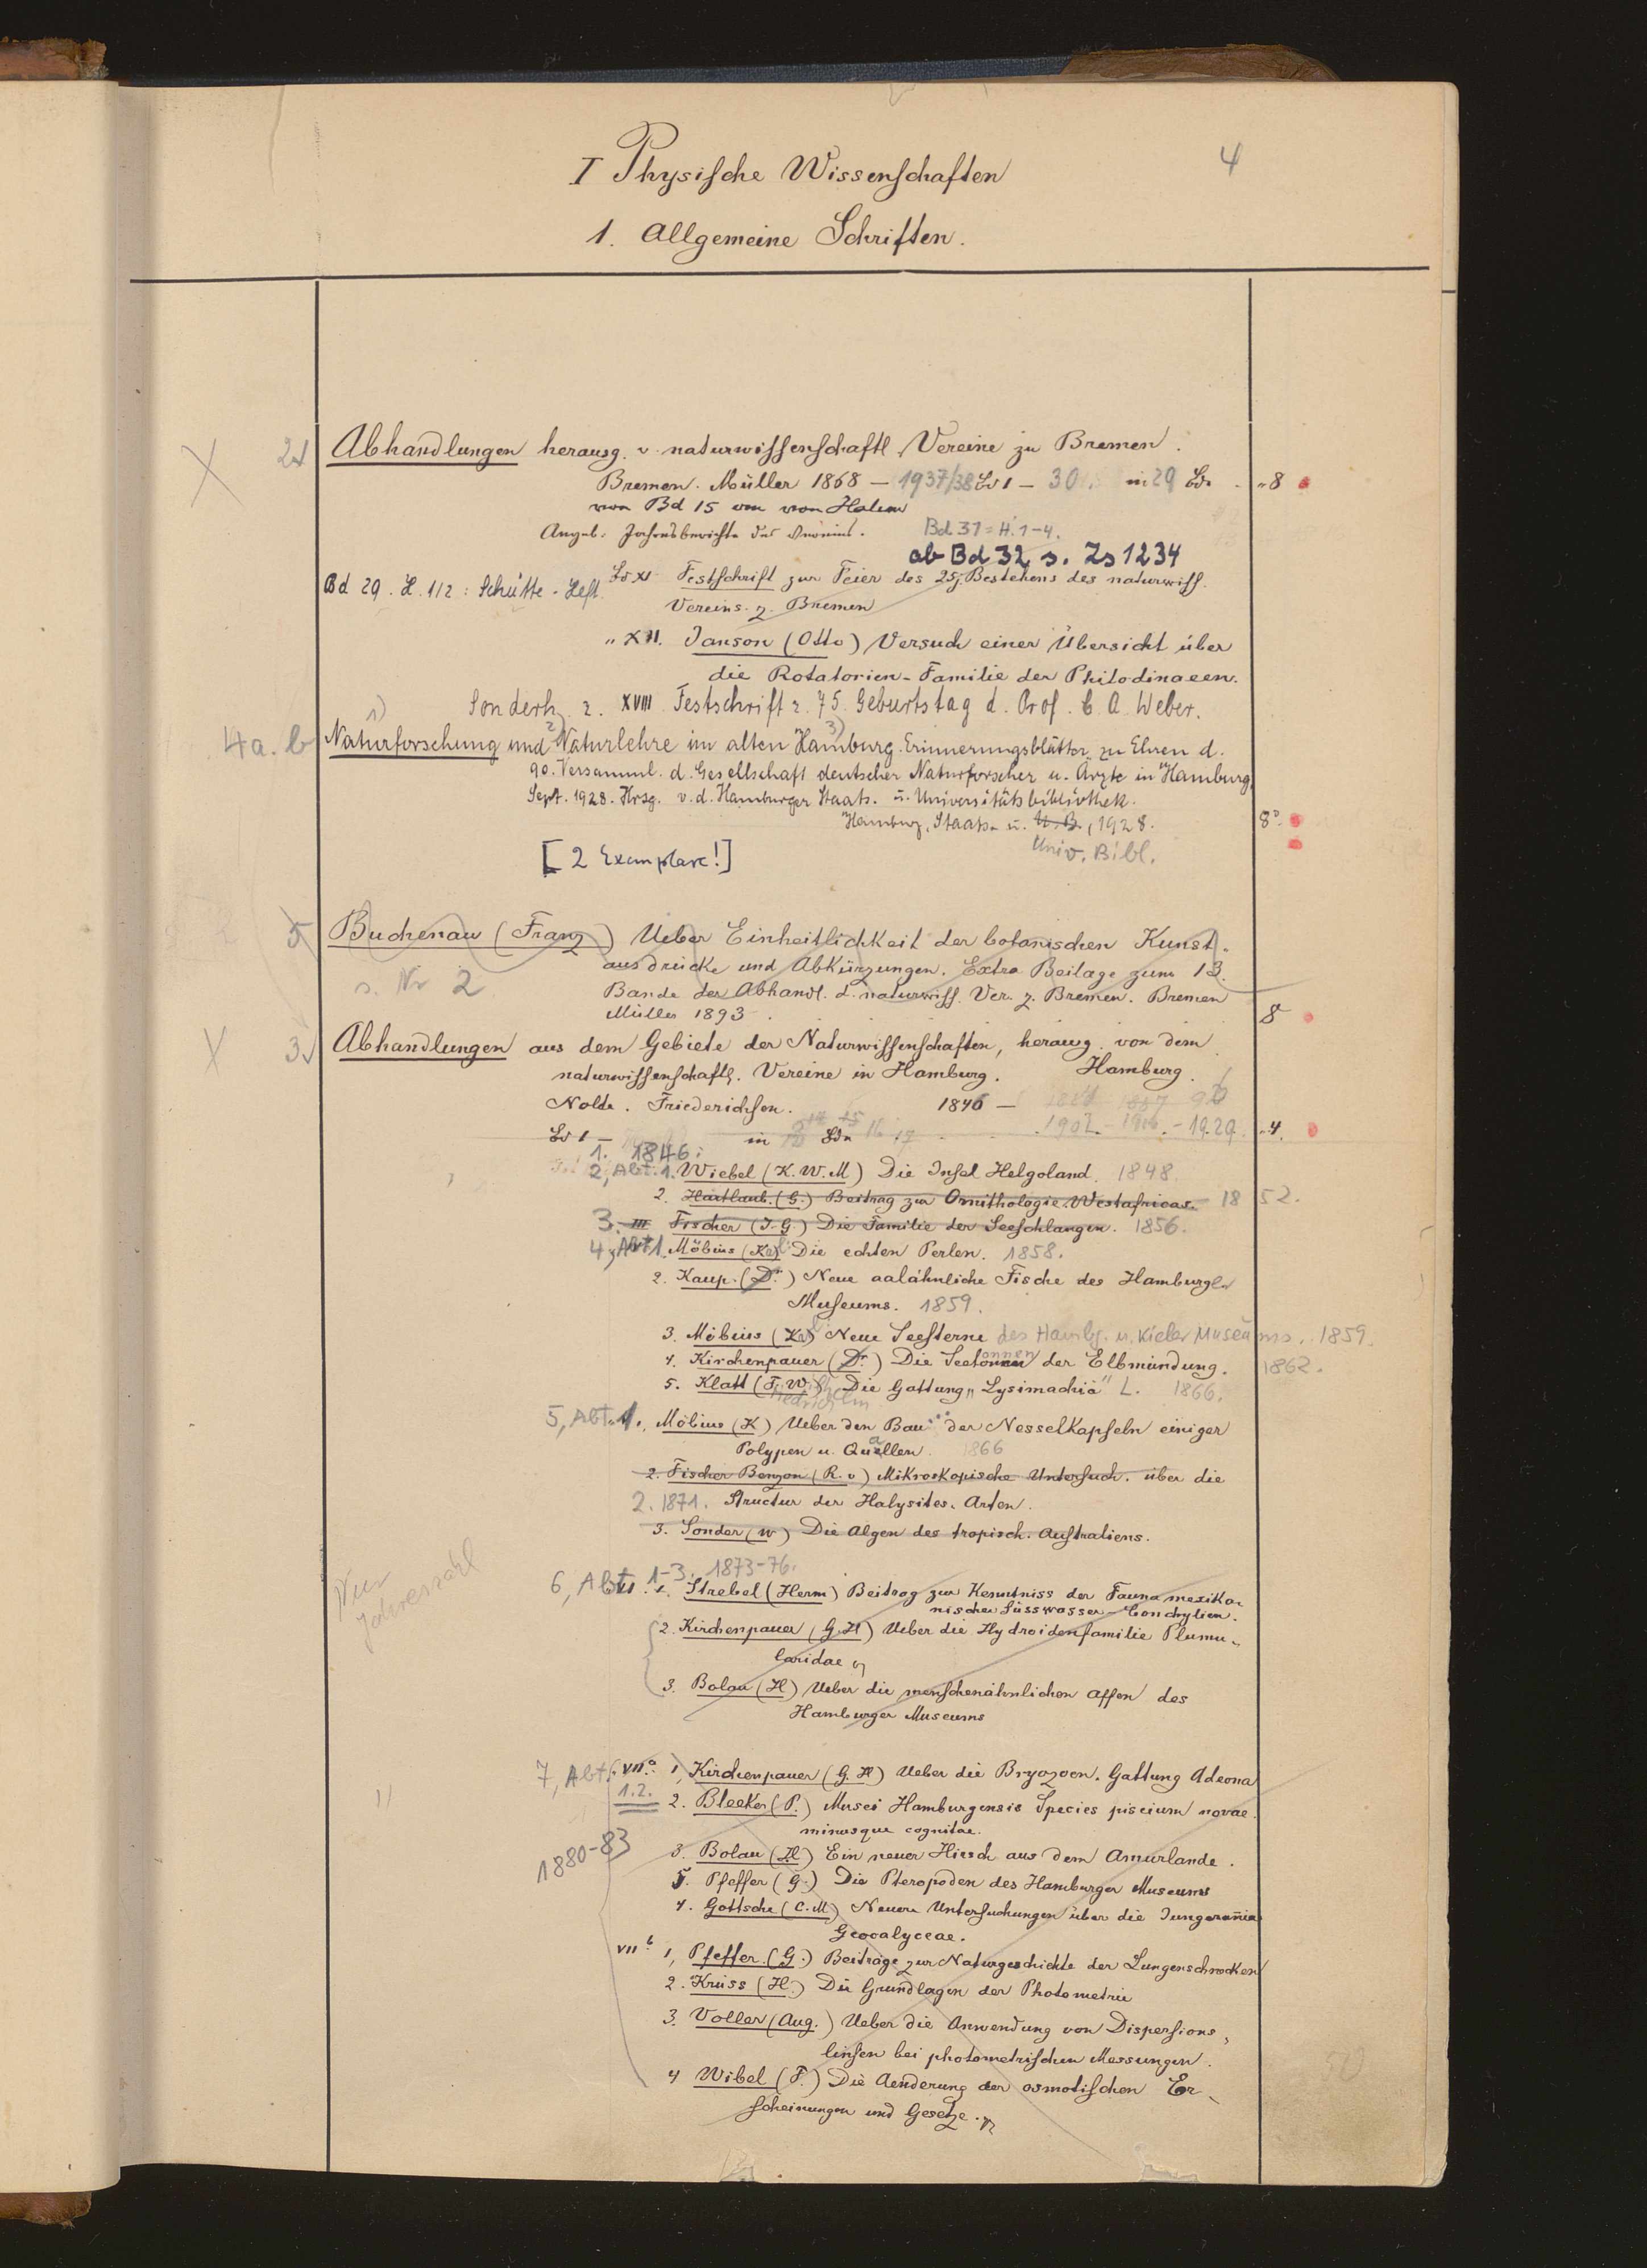 4
I Physische Wissenschaften
1. Allgemeine Schriften.
2 Abhandlungen herausg. v. naturwissenschaftl. Vereine zu Bremen.
Bremen. Müller 1868 – 1937/38 Bd 1 – 30. in 29 Bdn „8
von Bd 15 von Halem
Angeb: Jahresberichte des Vereins. Bd 31 = H. 1–4.
ab Bd 32 s. Zs 1234
Bd XI Festschrift zur Feier des 25j. Bestehens des naturwiss.
Bd 29. H. 1/2: Schütte-Heft.
Vereins. z. Bremen
„ XII. Janson (Otto) Versuch einer Übersicht über
die Rotatorien-Familie der Philodinaeen.
Sonderh. z. XVIII Festschrift z. 75. Geburtstag d. Prof. C. A. Weber.
4a. b Naturforschung und Naturlehre im alten Hamburg. Erinnerungsblätter zu Ehren d.
90. Versamml. d. Gesellschaft deutscher Naturforscher u. Ärzte in Hamburg,
Sept. 1928. Hrsg. v. d. Hamburger Staats- u. Universitätsbibliothek.
Hamburg, Staats- u. U. B., 1928. 8°.
Univ. Bibl.
[2 Exemplare!]
5 Buchenau (Franz) Ueber Einheitlichkeit der botanischen Kunst-
ausdrücke und Abkürzungen. Extra Beilage zum 13.
s. Nr 2
Bande der Abhandl. d. naturwiss. Ver. z. Bremen. Bremen
Müller 1893. 8
3 Abhandlungen aus dem Gebiete der Naturwissenschaften, herausg. von dem
naturwissenschaftl. Vereine in Hamburg. Hamburg.
Nolte. Friederichsen. 1846 –
Bd 1 – in Bdn 16 17 1902 – 1906 – 1929. „4.
1. 1846:
2, Abt. 1. Wiebel (K. W. M) Die Insel Helgoland. 1848.
2. Hartlaub. (G.) Beitrag zur Ornithologie Westafricas. 1852.
3. III Fischer (J. G.) Die Familie der Seeschlangen. 1856.
4, Abt 1. Möbius (Karl) Die echten Perlen. 1858.
2. Kaup. (Dr.) Neue aalähnliche Fische des Hamburger
Museums. 1859.
3. Möbius (Karl) Neue Seesterne des Hambg. u. Kieler Museums. 1859.
4. Kirchenpauer (Dr.) Die Seetonnen der Elbmündung. 1862.
5. Klatt (F. W.) Die Gattung „Lysimachia" L. 1866.
5, Abt. 1., Möbius (K) Ueber den Bau der Nesselkapseln einiger
Polypen u. Quallen. 1866
2. Fischer Benzon (R. v) Mikroskopische Untersuch. über die
2. 1871. Structur der Halysites-Arten.
3. Sonder (W) Die Algen des tropisch. Australiens.
6, Abt. 1–3. 1873–76.
1. Strebel (Herm) Beitrag zur Kenntniss der Fauna mexika-
nischer Süsswasser-Conchylien.
Nur
Jahreszahl
2. Kirchenpauer (G. H) Ueber die Hydroidenfamilie Plumu-
laridae
3. Bolau (H) Ueber die menschenähnlichen Affen des
Hamburger Museums
7, Abt. VIIa. 1, Kirchenpauer (G. H) Ueber die Bryozoen-Gattung Adeona
1.2. 2. Bleeker (P.) Musei Hamburgensis Species piscium novae
minusque cognitae.
1880–83
3. Bolau (H) Ein neuer Hirsch aus dem Amurlande.
5. Pfeffer (G.) Die Pteropoden des Hamburger Museums
4. Gottsche (C. M) Neuere Untersuchungen über die Jungermaniae
Geocalyceae.
VIIb 1, Pfeffer (G.) Beiträge zur Naturgeschichte der Lungenschnecken
2. Krüss (H.) Die Grundlagen der Photometrie
3. Voller (Aug.) Ueber die Anwendung von Dispersions-
linsen bei photometrischen Messungen.
4 Wibel (F.) Die Aenderung der osmotischen Er-
scheinungen und Gesetze.